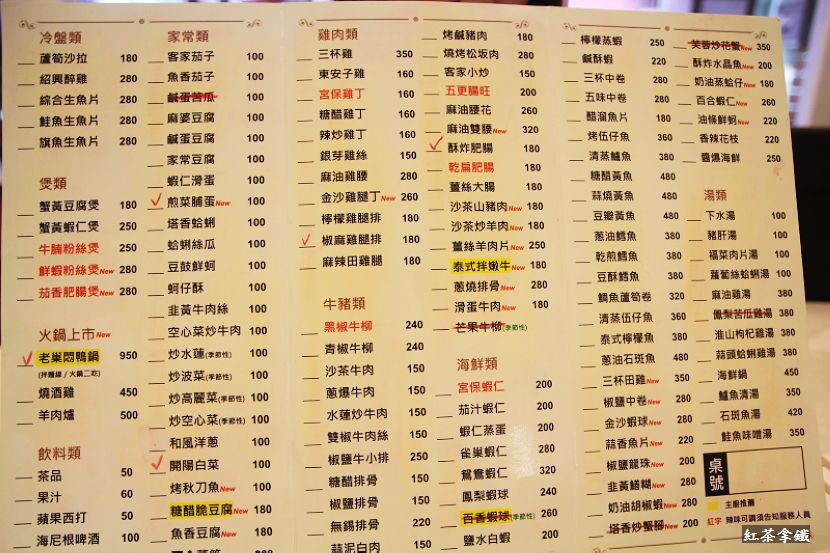 冷盤類
蘆筍沙拉 180
紹興醉雞 280
綜合生魚片 280
鮭魚生魚片 280
旗魚生魚片 280
煲類
蟹黃豆腐煲 180
蟹黃蝦仁煲 250
牛腩粉絲煲 250
鮮蝦粉絲煲New 280
茄香肥腸煲New 280
火鍋上市New
老巢悶鴨鍋 950
(拌麵線/火鍋二吃)
燒酒雞 450
羊肉爐 500
飲料類
茶品 50
果汁 60
蘋果西打 50
海尼根啤酒 100
家常類
客家茄子 100
魚香茄子 100
鹹蛋苦瓜 100
麻婆豆腐 100
鹹蛋豆腐 100
家常豆腐 100
蝦仁滑蛋 100
煎菜脯蛋New 100
塔香蛤蜊 100
蛤蜊絲瓜 100
豆鼓鮮蚵 100
蚵仔酥 100
韭黃牛肉絲 100
空心菜炒牛肉 100
炒水蓮(季節性) 100
炒波菜(季節性) 100
炒高麗菜(季節性) 100
炒空心菜(季節性) 100
和風洋蔥 100
開陽白菜 100
烤秋刀魚New 100
糖醋脆豆腐New 180
魚香豆腐New 180
雞肉類
三杯雞 350
東安子雞 160
宮保雞丁 160
糖醋雞丁 160
辣炒雞丁 160
銀芽雞絲 140
麻油雞腰 280
金沙雞腿丁New 260
檸檬雞腿排 180
椒麻雞腿排 180
麻辣田雞腿 180
牛豬類
黑椒牛柳 240
青椒牛柳 240
沙茶牛肉 150
蔥爆牛肉 150
水蓮炒牛肉 150
雙椒牛肉絲 150
椒鹽牛小排 250
糖醋排骨 150
椒鹽排骨 150
無錫排骨 220
蒜泥白肉 150
烤鹹豬肉 180
燒烤松坂肉 280
客家小炒 150
五更腸旺 200
麻油腰花 260
麻油雙腰New 320
酥炸肥腸 180
乾扁肥腸 180
薑絲大腸 180
沙茶山豬肉New 180
沙茶炒羊肉New 180
薑絲羊肉片New 250
泰式拌嫩牛New 180
蔥燒排骨New 280
滑蛋牛肉New 180
芒果牛柳(季節性)
海鮮類
宮保蝦仁 200
茄汁蝦仁 200
蝦仁蒸蛋 200
雀巢蝦仁 280
鴛鴦蝦仁 320
鳳梨蝦球 200
百香蝦球(季節性) 260
鹽水白蝦 200
檸檬蒸蝦 250
鹹酥蝦 200
三杯中卷 280
五味中卷 280
醋溜魚片 180
烤伍仔魚 250
清蒸鱸魚 380
糖醋黃魚 380
蒜燒黃魚 380
豆瓣黃魚 380
蔥油鱈魚 380
乾煎鱈魚 380
豆酥鱈魚 380
鯛魚蘆筍卷 320
清蒸伍仔魚 250
泰式檸檬魚 380
蔥油石斑魚 380
三杯田雞New 350
椒鹽中卷New 280
金沙蝦球New 250
蒜香魚片New 220
椒鹽龍珠New 200
韭黃鱔糊New 280
奶油胡椒蝦New
塔香炒蟹腳New 220
芙蓉炒花蟹New 350
酥炸水晶魚New 200
奶油蒸蛤仔New 180
百合蝦仁New 260
油條鮮蚵New 220
香辣花枝 220
醬爆海鮮 250
湯類
下水湯 100
豬肝湯 100
福菜肉片湯 100
蘿蔔絲蛤蜊湯 180
麻油雞湯 380
鳳梨苦瓜雞湯 380
淮山枸杞雞湯 380
蒜頭蛤蜊雞湯 380
海鮮鍋 450
鱸魚清湯 350
石斑魚湯 420
鮭魚味噌湯 350
桌號
主廚推薦
紅字 辣味可調須告知服務人員
紅茶拿鐵